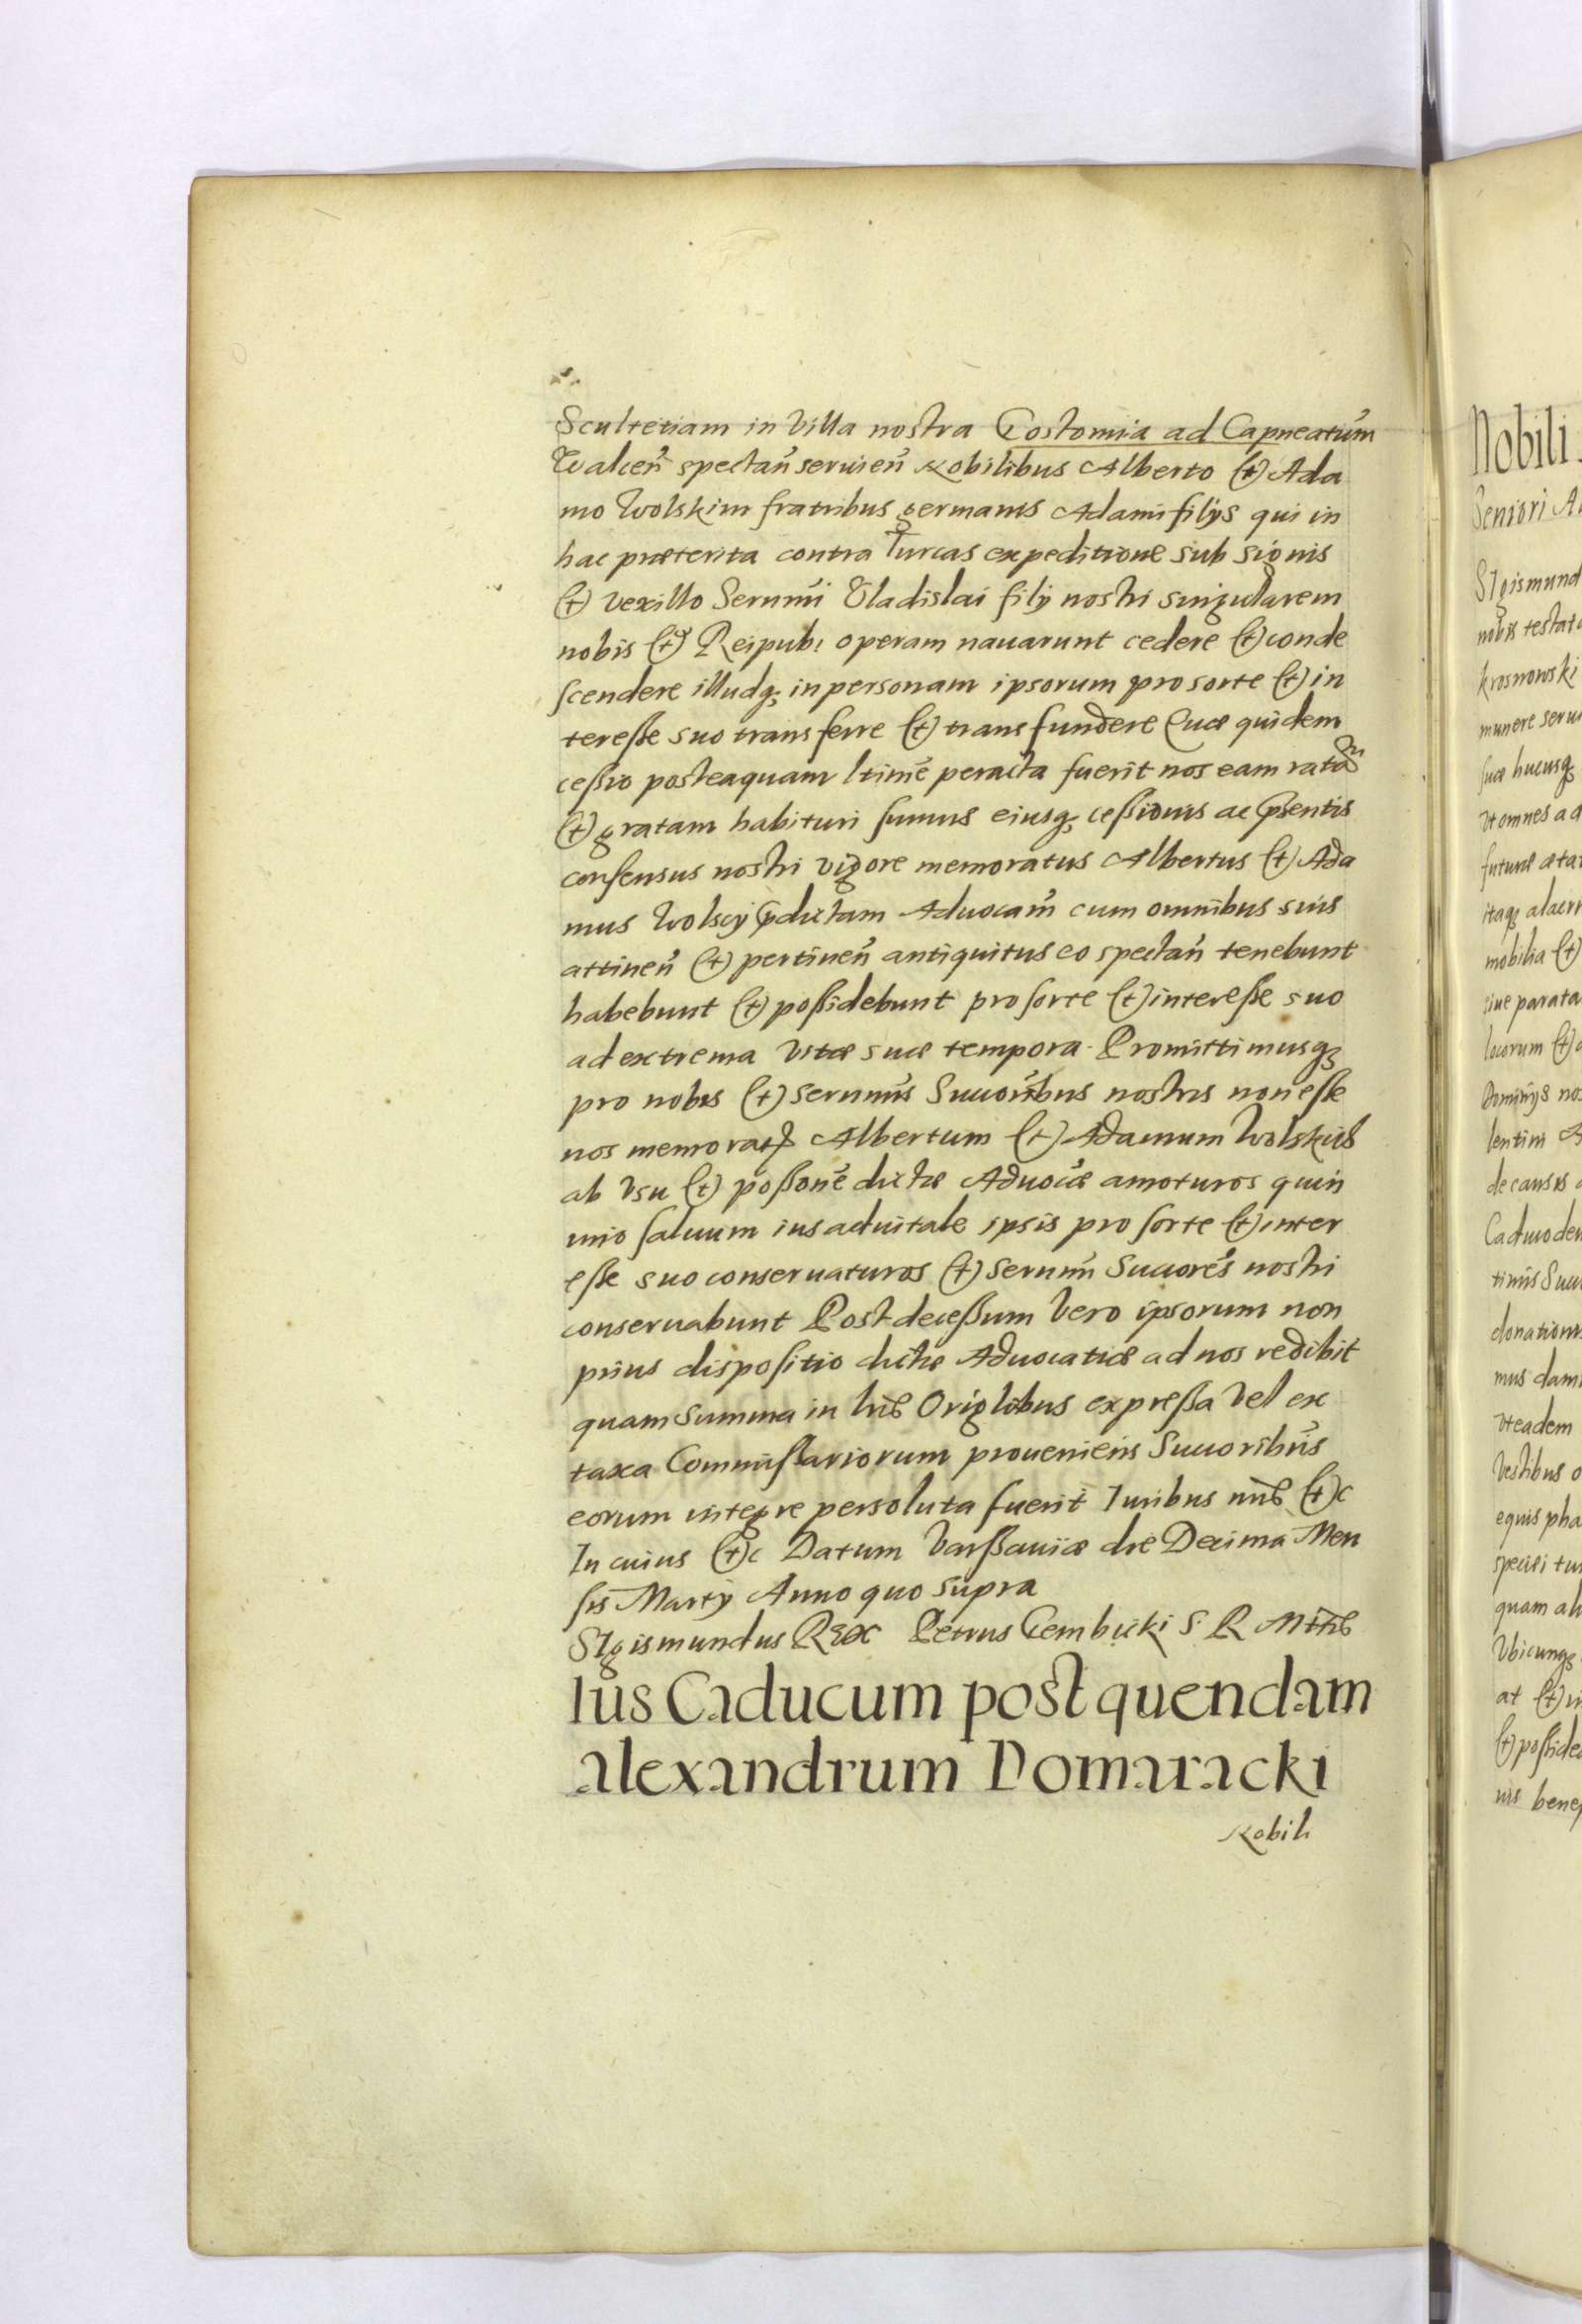 Scultetiam in Villa nostra Costomia ad Capneatum̃
Walcen̄ spectan̄ servien̄ Nobilibus Alberto (t) Ada
mo Wolskim fratribus germanis Adami filijs qui in
hac præterita contra Turcas expeditione sub signis
(t) vexillo Serenn̄i Vladislai filij nostri singularem
nobis (t) Reipub: operam nauarunt cedere (t) conde
scendere illudq; in personam ipsorum pro sorte (t) in
teresse suo transferre (t) transfundere Quæ quidem
cessio posteaquam ltimē peracta fuerit nos eam ratam
(t) gratam habituri sumus eiusq; cessionis ac p̄sentis
consensus nostri vigore memoratus Albertus (t) Ada
mus Wolscij p̄dictam Aduocam̄ cum omnibus suis
attinen̄ (t) pertinen̄ antiquitus eo spectan̄ tenebunt
habebunt (t) possidebunt pro sorte (t) interesse suo
ad extrema vitæ suæ tempora. Promittimusq;
pro nobis (t) Sernn̄is Succoribus nostris non esse
nos memorat; Albertum (t) Adamum Wolskiẽ
ab Vsu (t) possone dictæ Aduocæ amoturos quin
imo saluum ius aduitale ipsis pro sorte (t) inter
esse suo conseruaturos (t) Sernn̄i Succores nostri
conseruabunt Post decessum Vero ipsorum non
prius dispositio dictæ Aduocatiæ ad nos redibit
quam summa in lrīs Origlibus expressa Vel ex
taxa Commissariorum proueniens Succoribus
eorum integre persoluta fuerit Iuribus nrīs (t)c
In cuius (t)c Datum Varssauiæ die Decima Men
sis Martij Anno quo supra
Sigismundus Rex Petrus Gembicki S. R. Mttis
Ius Caducum post quendam
alexandrum Domaracki
Nobili
Nobili
Seniori A
Sigismund
nobis testat
krosnowski
munere serui
suæ hucusq;
Vt omnes ad
futuræ ætat
itaq; alacri
mobilia (t)
siue parata
locorum (t)
Dominijs nos
lentim A
de causis
Caduo den
timis Succ
donationis
mus dam
Vt eadem
Vestibus o
equis pha
speciei tu
quam al
Vbicunq;
at (t) in
(t) posside
nis bene